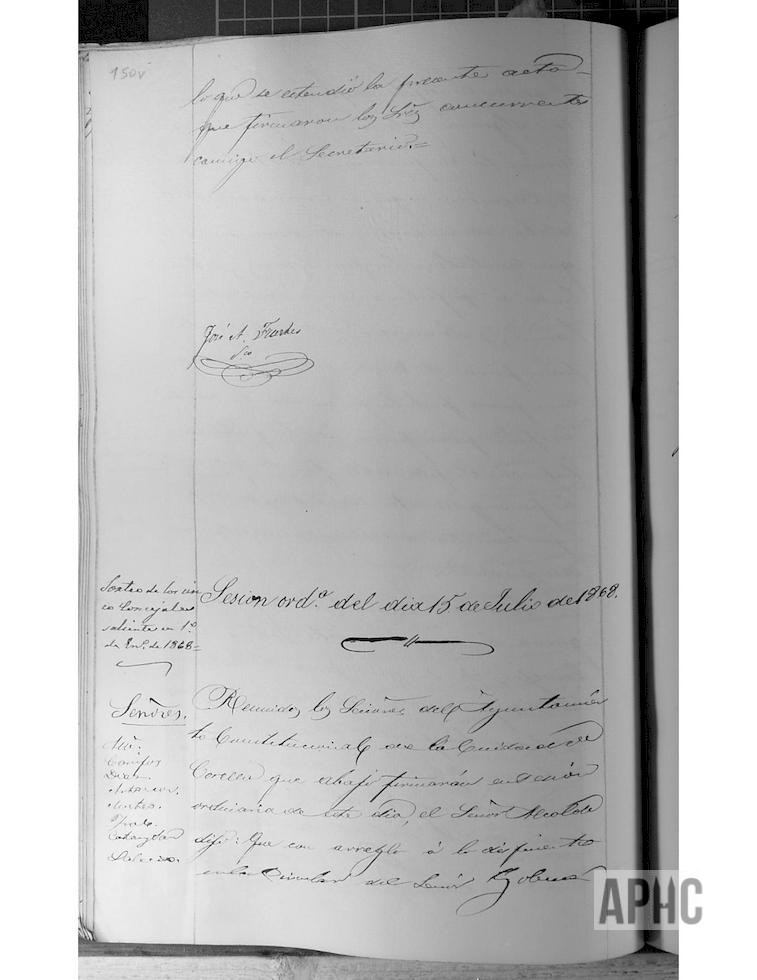 150v
lo que se estendió la presente acta
que firmaron los Sres. concurrentes
conmigo el Secretario.=
José A.
Sco
Sorteo de los cin
co Concejales
saliente en 1º
de Enº. de 1868=
Sesion ordª. del dia 15 de Julio de 1868.
Señores.
Reunidos los Señores del Ayuntamien
to Constitucional de la Ciudad de
que abajo firmarán en sesión
ordinaria de este dia, el Señor Alcalde
dijo: Que con arreglo á lo dispuesto
en la Circular del Señor Gober
APHC